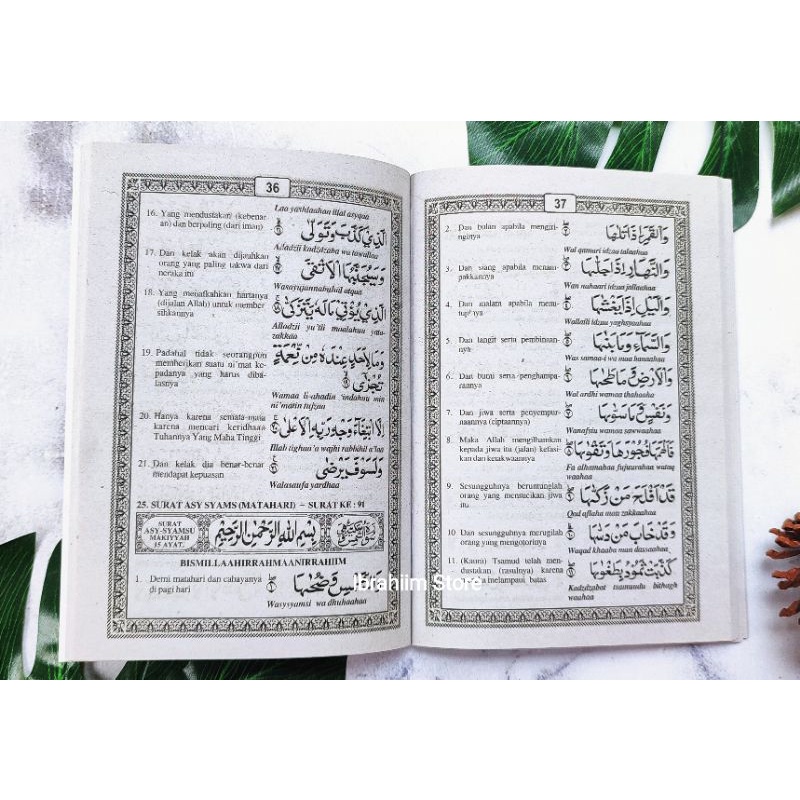 36
Laa yashlaahaa illal asyqaa
16. Yang mendustakan (kebenar
an) dan berpoling (dari iman)
الَّذِي كَذَّبَ وَتَوَلَّى
Alladzii kadzdzaba wa tawallaa
17. Dan kelak akan dijauhkan
orang yang paling takwa dari
neraka itu
وَسَيُجَنَّبُهَا الْأَتْقَى
Wasayujannabuhal atqaa
18. Yang menafkahkan hartanya
(dijalan Allah) untuk member
sihkannya
الَّذِي يُؤْتِي مَالَهُ يَتَزَكَّى
Alladzii yu'tii maalahuu yata-
zakkaa
19. Padahal tidak seorangpun
memberikan suatu ni'mat ke-
padanya yang harus diba-
lasnya
وَمَا لِأَحَدٍ عِنْدَهُ مِنْ نِعْمَةٍ
تُجْزَى
Wamaa li-ahadin 'indahuu min
ni'matin tujzaa
20. Hanya karena semata-mata
karena mencari keridhaan
Tuhannya Yang Maha Tinggi
إِلَّا ابْتِغَاءَ وَجْهِ رَبِّهِ الْأَعْلَى
Illab tighaa'a wajhi rabbihil a'laa
21. Dan kelak dia benar-benar
mendapat kepuasan
وَلَسَوْفَ يَرْضَى
Walasaufa yardhaa
25. SURAT ASY SYAMS (MATAHARI) – SURAT KE : 91
SURAT
ASY-SYAMSU
MAKIYYAH
15 AYAT.
بِسْمِ اللهِ الرَّحْمٰنِ الرَّحِيْمِ
BISMILLAAHIRRAHMAANIRRAHIIM
1. Demi matahari dan cahayanya
di pagi hari
وَالشَّمْسِ وَضُحَاهَا
Wasysyamsi wa dhuhaahaa
37
2. Dan bulan apabila mengiri-
nginya
وَالْقَمَرِ إِذَا تَلَاهَا
Wal qamari idzaa talaahaa
3. Dan siang apabila menam-
pakkannya
وَالنَّهَارِ إِذَا جَلَّاهَا
Wan nahaari idzaa jallaahaa
4. Dan malam apabila menu-
tupinya
وَالَّيْلِ إِذَا يَغْشَاهَا
Wallaili idzaa yaghsyaahaa
5. Dan langit serta pembinaan-
nya
وَالسَّمَاءِ وَمَا بَنَاهَا
Was samaa-i wa maa banaahaa
6. Dan bumi serta penghampa-
raannya
وَالْأَرْضِ وَمَا طَحَاهَا
Wal ardhi wamaa thahaahaa
7. Dan jiwa serta penyempur-
naannya (ciptaannya)
وَنَفْسٍ وَمَا سَوَّاهَا
Wanafsiu wamaa sawwaahaa
8. Maka Allah mengilhamkan
kepada jiwa itu (jalan) kefasi-
kan dan ketakwaannya
فَأَلْهَمَهَا فُجُورَهَا وَتَقْوَاهَا
Fa alhamahaa fujuurahaa wataq
waahaa
9. Sesungguhnya beruntunglah
orang yang mensucikan jiwa
itu
قَدْ أَفْلَحَ مَنْ زَكَّاهَا
Qad aflaha man zakkaahaa
10. Dan sesungguhnya merugilah
orang yang mengotorinya
وَقَدْ خَابَ مَنْ دَسَّاهَا
Waqad khaaba man dassaahaa
11. (Kaum) Tsamud telah men-
dustakan (rasulnya) karena
melampaui batas
كَذَّبَتْ ثَمُودُ بِطَغْوَاهَا
Kadzdzabat tsamuudu bithagh
waahaa
Ibrahiim Store